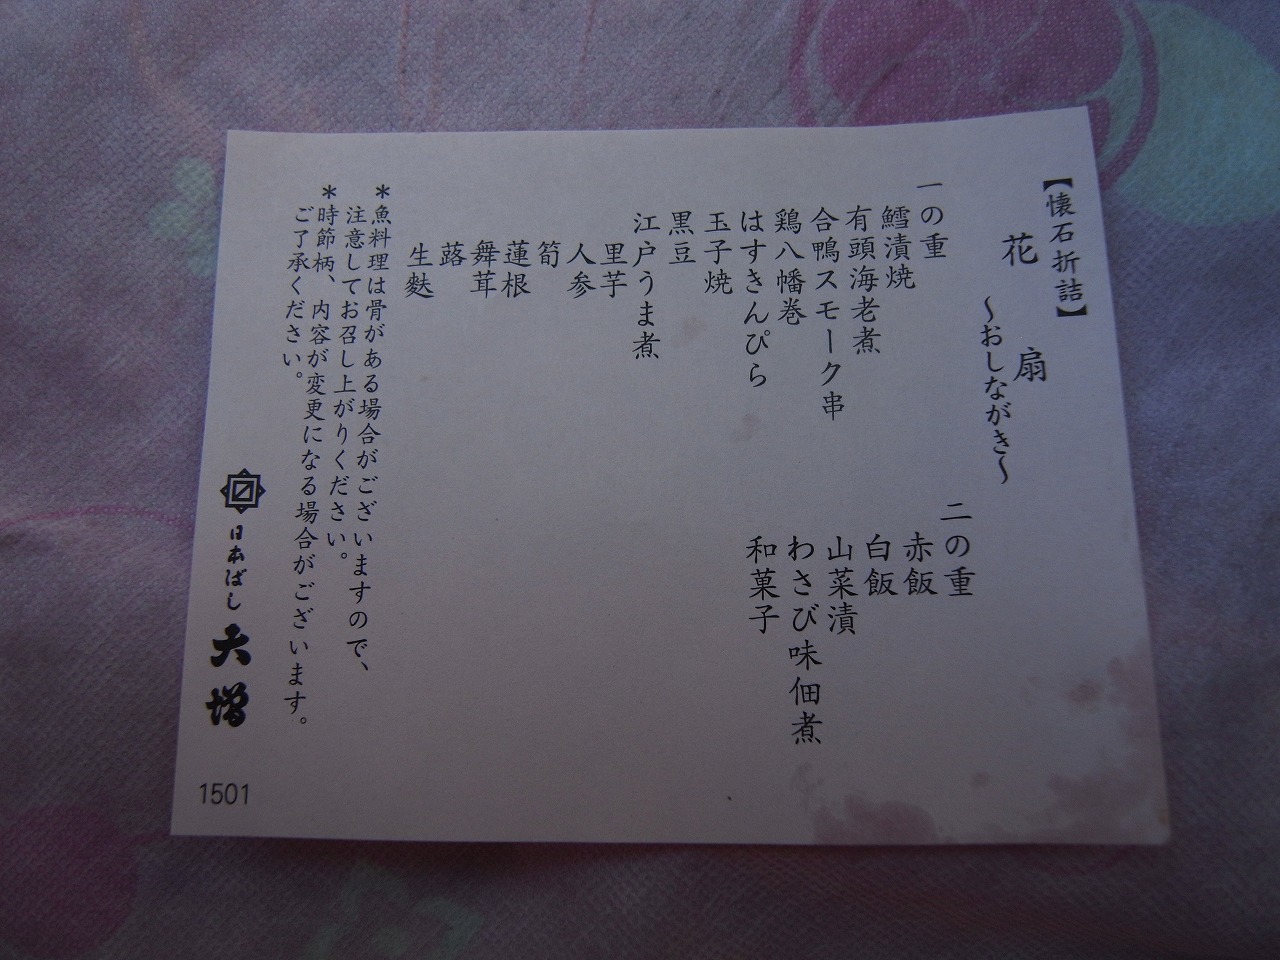 【懐石折詰】
花扇
～おしながき～
一の重
鱈漬焼
有頭海老煮
合鴨スモーク串
鶏八幡巻
はすきんぴら
玉子焼
黒豆
江戸うま煮
里芋
人参
筍
蓮根
舞茸
蕗
生麩
二の重
赤飯
白飯
山菜漬
わさび味佃煮
和菓子
＊魚料理は骨がある場合がございますので、
注意してお召し上がりください。
＊時節柄、内容が変更になる場合がございます。
ご了承ください。
日本ばし
大増
1501